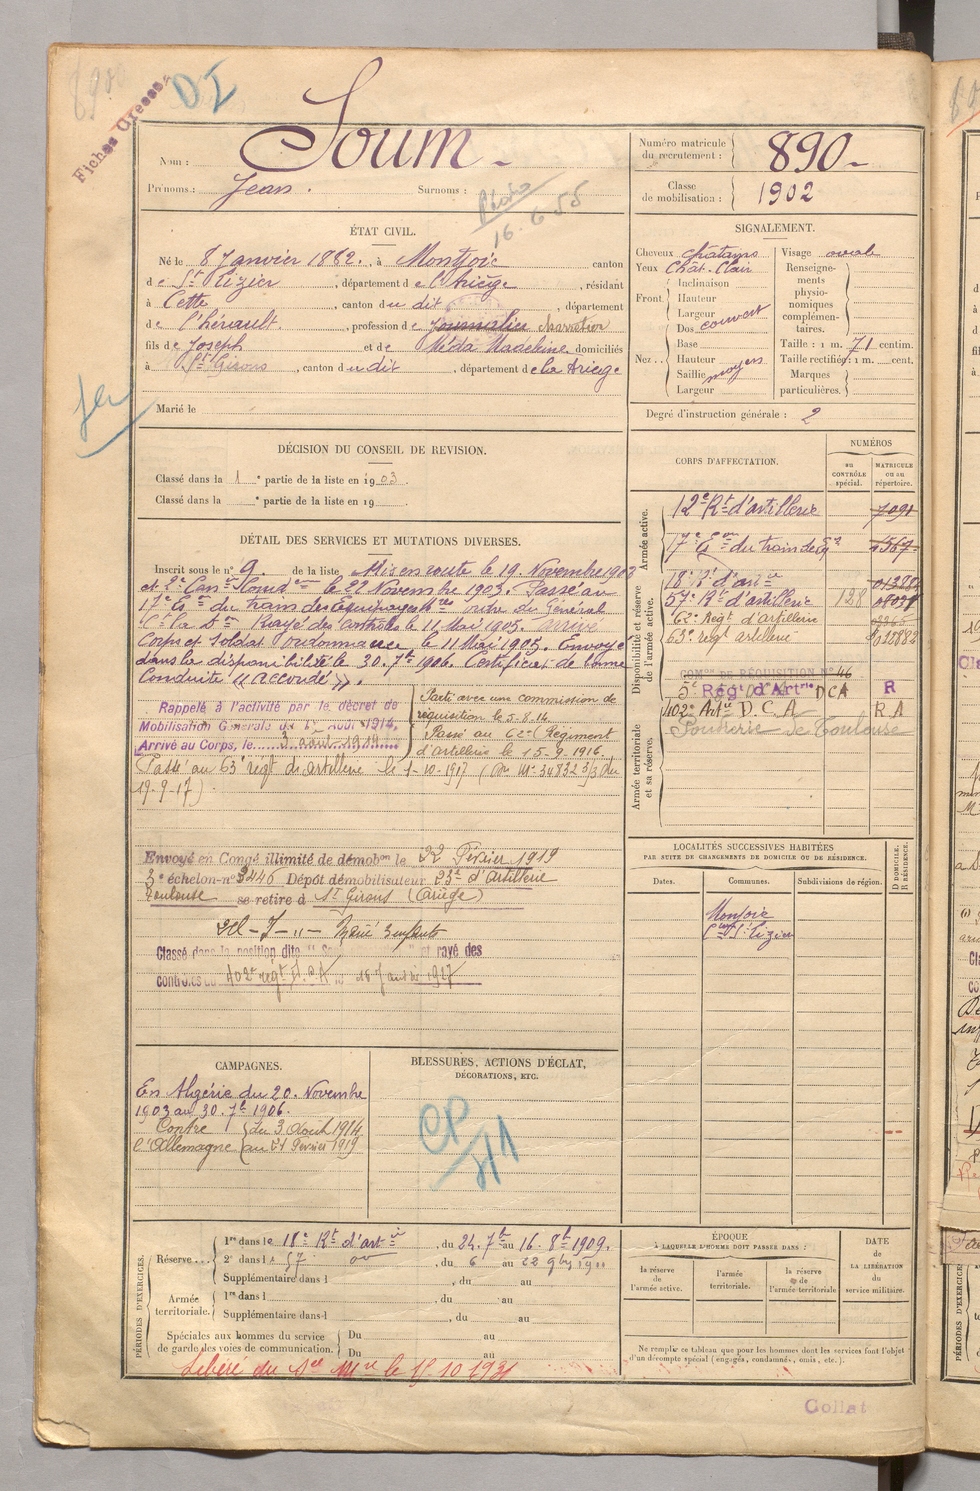 D I
Fiches
Nom : Soum
Prénoms : Jean. Surnoms :
Photo
16.6.55
Numéro matricule du recrutement : 890
Classe de mobilisation : 1902
ÉTAT CIVIL.
Né le 8 Janvier 1882, à Montjoie canton
de St Lizier, département de l'Ariège, résidant
à Cette, canton du dit, département
de l'hérault, profession de Journalier
fils de Joseph et de Méda Madeleine domiciliés
à St Girons, canton du dit, département de la Ariège
Marié le
SIGNALEMENT.
Cheveux châtains Visage ovale
Yeux Chât. Clair
Front. Inclinaison
Hauteur
Largeur
Nez. Dos couvert
Base
Hauteur
Saillie moyen
Largeur
Renseignements physionomiques complémentaires.
Taille : 1 m. 71 centim.
Taille rectifiée : 1 m. cent.
Marques particulières.
Degré d'instruction générale : 2
DÉCISION DU CONSEIL DE REVISION.
Classé dans la 1e partie de la liste en 1903.
Classé dans la e partie de la liste en 19
DÉTAIL DES SERVICES ET MUTATIONS DIVERSES.
Inscrit sous le n° 9. de la liste Mis en route le 19. Novembre 1903
et 2e Can er le 22 Novembre 1903. Passé au
17e Eon du train des Equipages Mres ordre du Général
Ct la Don Rayé des Contrôles le 11 Mai 1905. Arrivé
Corps et soldat ordonnance le 11 Mai 1905. Envoyé
dans la disponibilité le 30. 7bre 1906. Certificat de bonne
Conduite « Accordé ».
Rappelé à l'activité par le décret de
Mobilisation Générale du 1er Août 1914,
Arrivé au Corps, le 3 août 1914
Parti avec une commission de
réquisition le 5.8.14
Passé au 62e Régiment
d'artillerie le 15.9.1916
Passé au 63e régt d'artillerie le 1-10-1917 (Don Mle 34832 3/3 du
19-9-17)
Envoyé en Congé illimité de démobon le 22 Février 1919
3e échelon n° 3446 Dépôt démobilisateur 23e d'Artillerie
Toulouse se retire à St Girons (Ariège)
Marié 3 enfants
Classé dans la position dite "S " et rayé des
contrôles du 402e régt D.C.A le 18 Janvier 1927
CORPS D'AFFECTATION.
NUMÉROS
au CONTRÔLE spécial.
MATRICULE ou au répertoire.
Armée active.
12e Rt d'artillerie 7091
17e Eon du train des Eq 4567
Disponibilité et réserve de l'armée active.
18e Rt d'artie
57e Rt d'artillerie 128
62e Régt d'artillerie
63e régt artillerie
COMon DE RÉQUISITION N° 46
5e Régt d'Artie DCA R
402e Artie D.C.A. RA
Poudrerie de Toulouse
Armée territoriale et sa réserve.
LOCALITÉS SUCCESSIVES HABITÉES
PAR SUITE DE CHANGEMENTS DE DOMICILE OU DE RÉSIDENCE.
Dates. Communes. Subdivisions de région. D DOMICILE. R RÉSIDENCE.
Montjoie
Con St Lizier
CAMPAGNES.
En Algérie du 20. Novembre
1903 au 30. 7bre 1906.
Contre l'Allemagne
du 3 Août 1914
au 21 Février 1919
BLESSURES, ACTIONS D'ÉCLAT,
DÉCORATIONS, ETC.
PÉRIODES D'EXERCICES.
Réserve... 1re dans le 18e Rt d'artie, du 24. 7bre au 16. 8bre 1909.
2e dans le 57 do, du 6 au 22 9bre 1911
Supplémentaire dans l , du au
Armée territoriale. 1re dans l , du au
Supplémentaire dans l , du au
Spéciales aux hommes du service de garde des voies de communication. Du au
Du au
Libéré du Sce Mre le 15 10 1931
ÉPOQUE
À LAQUELLE L'HOMME DOIT PASSER DANS :
la réserve de l'armée active.
l'armée territoriale.
la réserve de l'armée territoriale
DATE
DE LA LIBÉRATION
du
service militaire.
Ne remplir ce tableau que pour les hommes dont les services font l'objet
d'un décompte spécial (engagés, condamnés, omis, etc.).
Collat